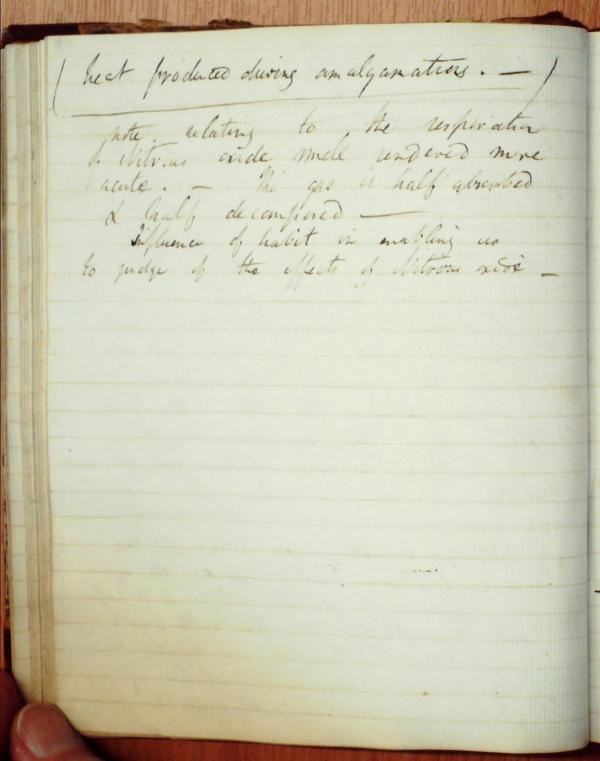 (heat produced during amalgamations. — )
note. relating to the respiration
of Nitrous oxide smell rendered more
acute. — The gas is half absorbed
& half decomposed —
Influence of habit in enabling us
to judge of the effects of Nitrous oxide —